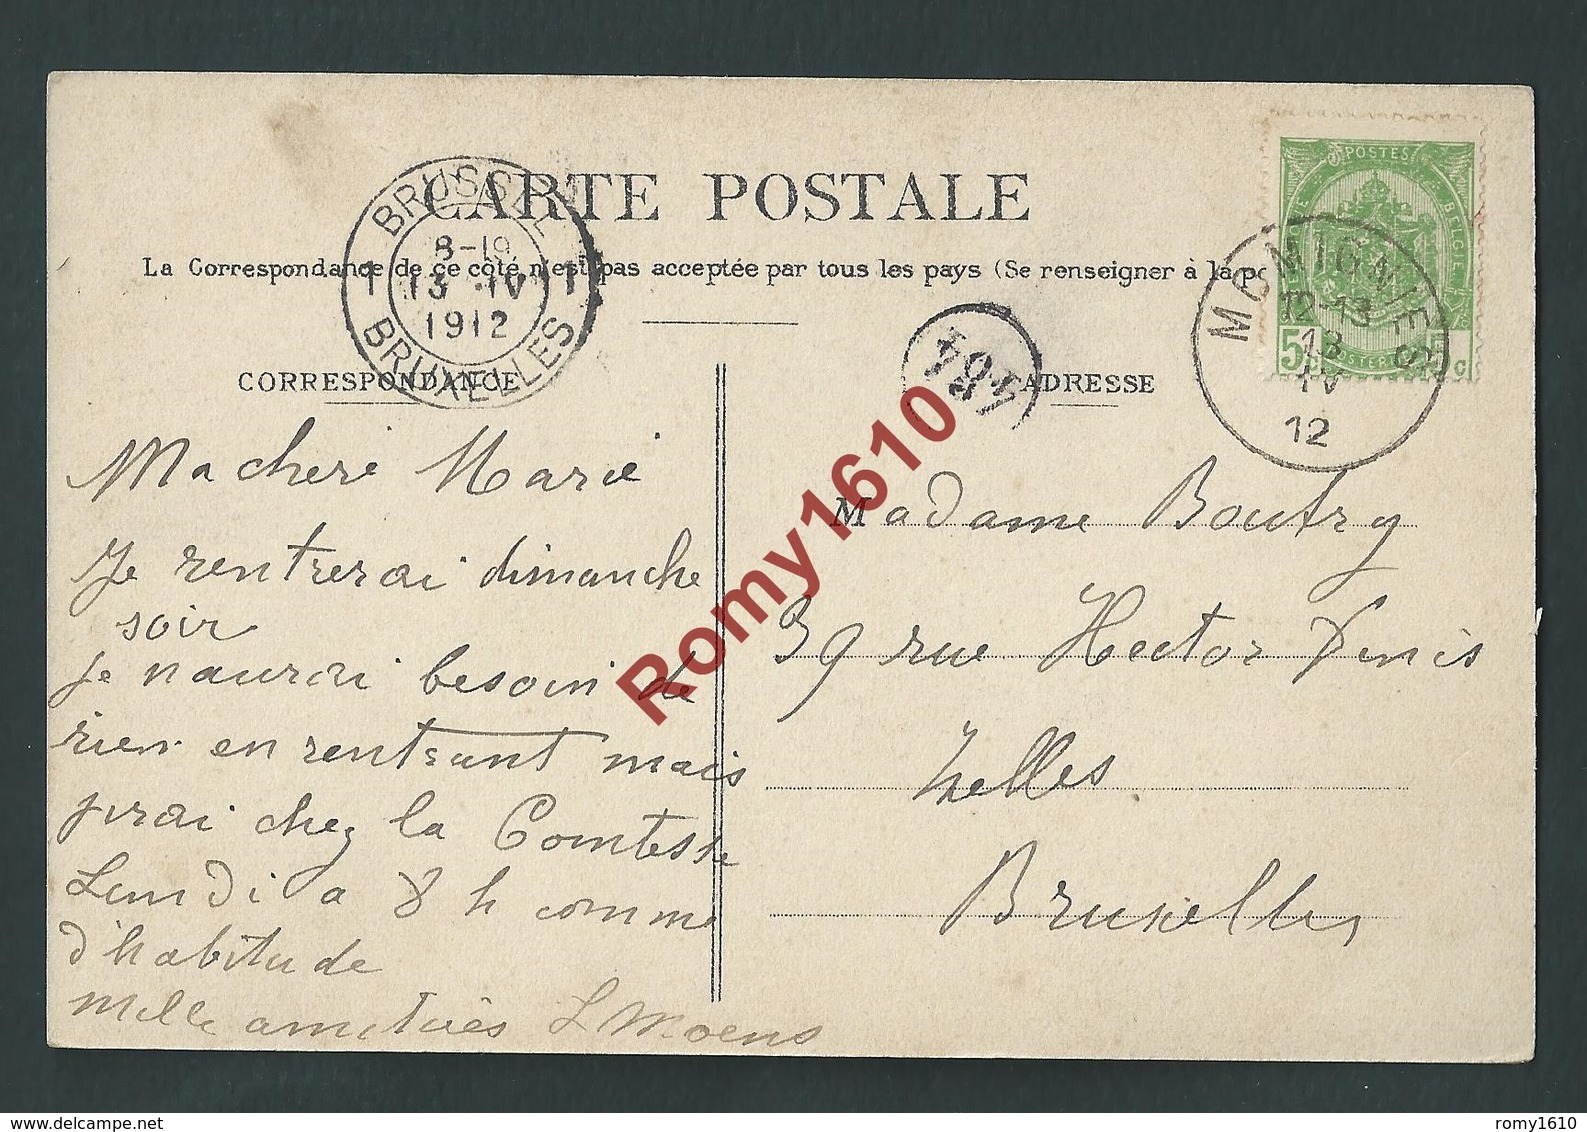 CARTE POSTALE
La Correspondance de ce côté n'est pas acceptée par tous les pays (Se renseigner à la po
BRUSSEL
8-19
1 13 IV 1
1912
BRUXELLES
POSTES
BELGIQUE BELGIE
5 C
MOMIGNIES
12-13
13
IV
12
CORRESPONDANCE
Ma cheré Marie
Je rentrerai dimanche
soir
je naurai besoin de
rien en rentrant mais
jirai chez la Comtesse
Lundi a 8 h comme
d'habitude
mille ametiés L Moens
ADRESSE
Madame Boutry
39 rue Hector Denis
Ixelles
Bruxelles
Romy1610
romy1610